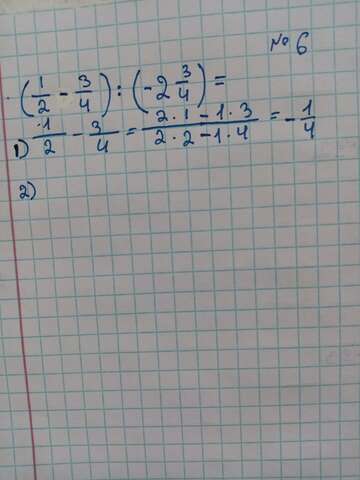 № 6
(1/2 - 3/4) : (-2 3/4) =
1) 1/2 - 3/4 = (2·1 - 1·3)/(2·2 - 1·4) = -1/4
2)